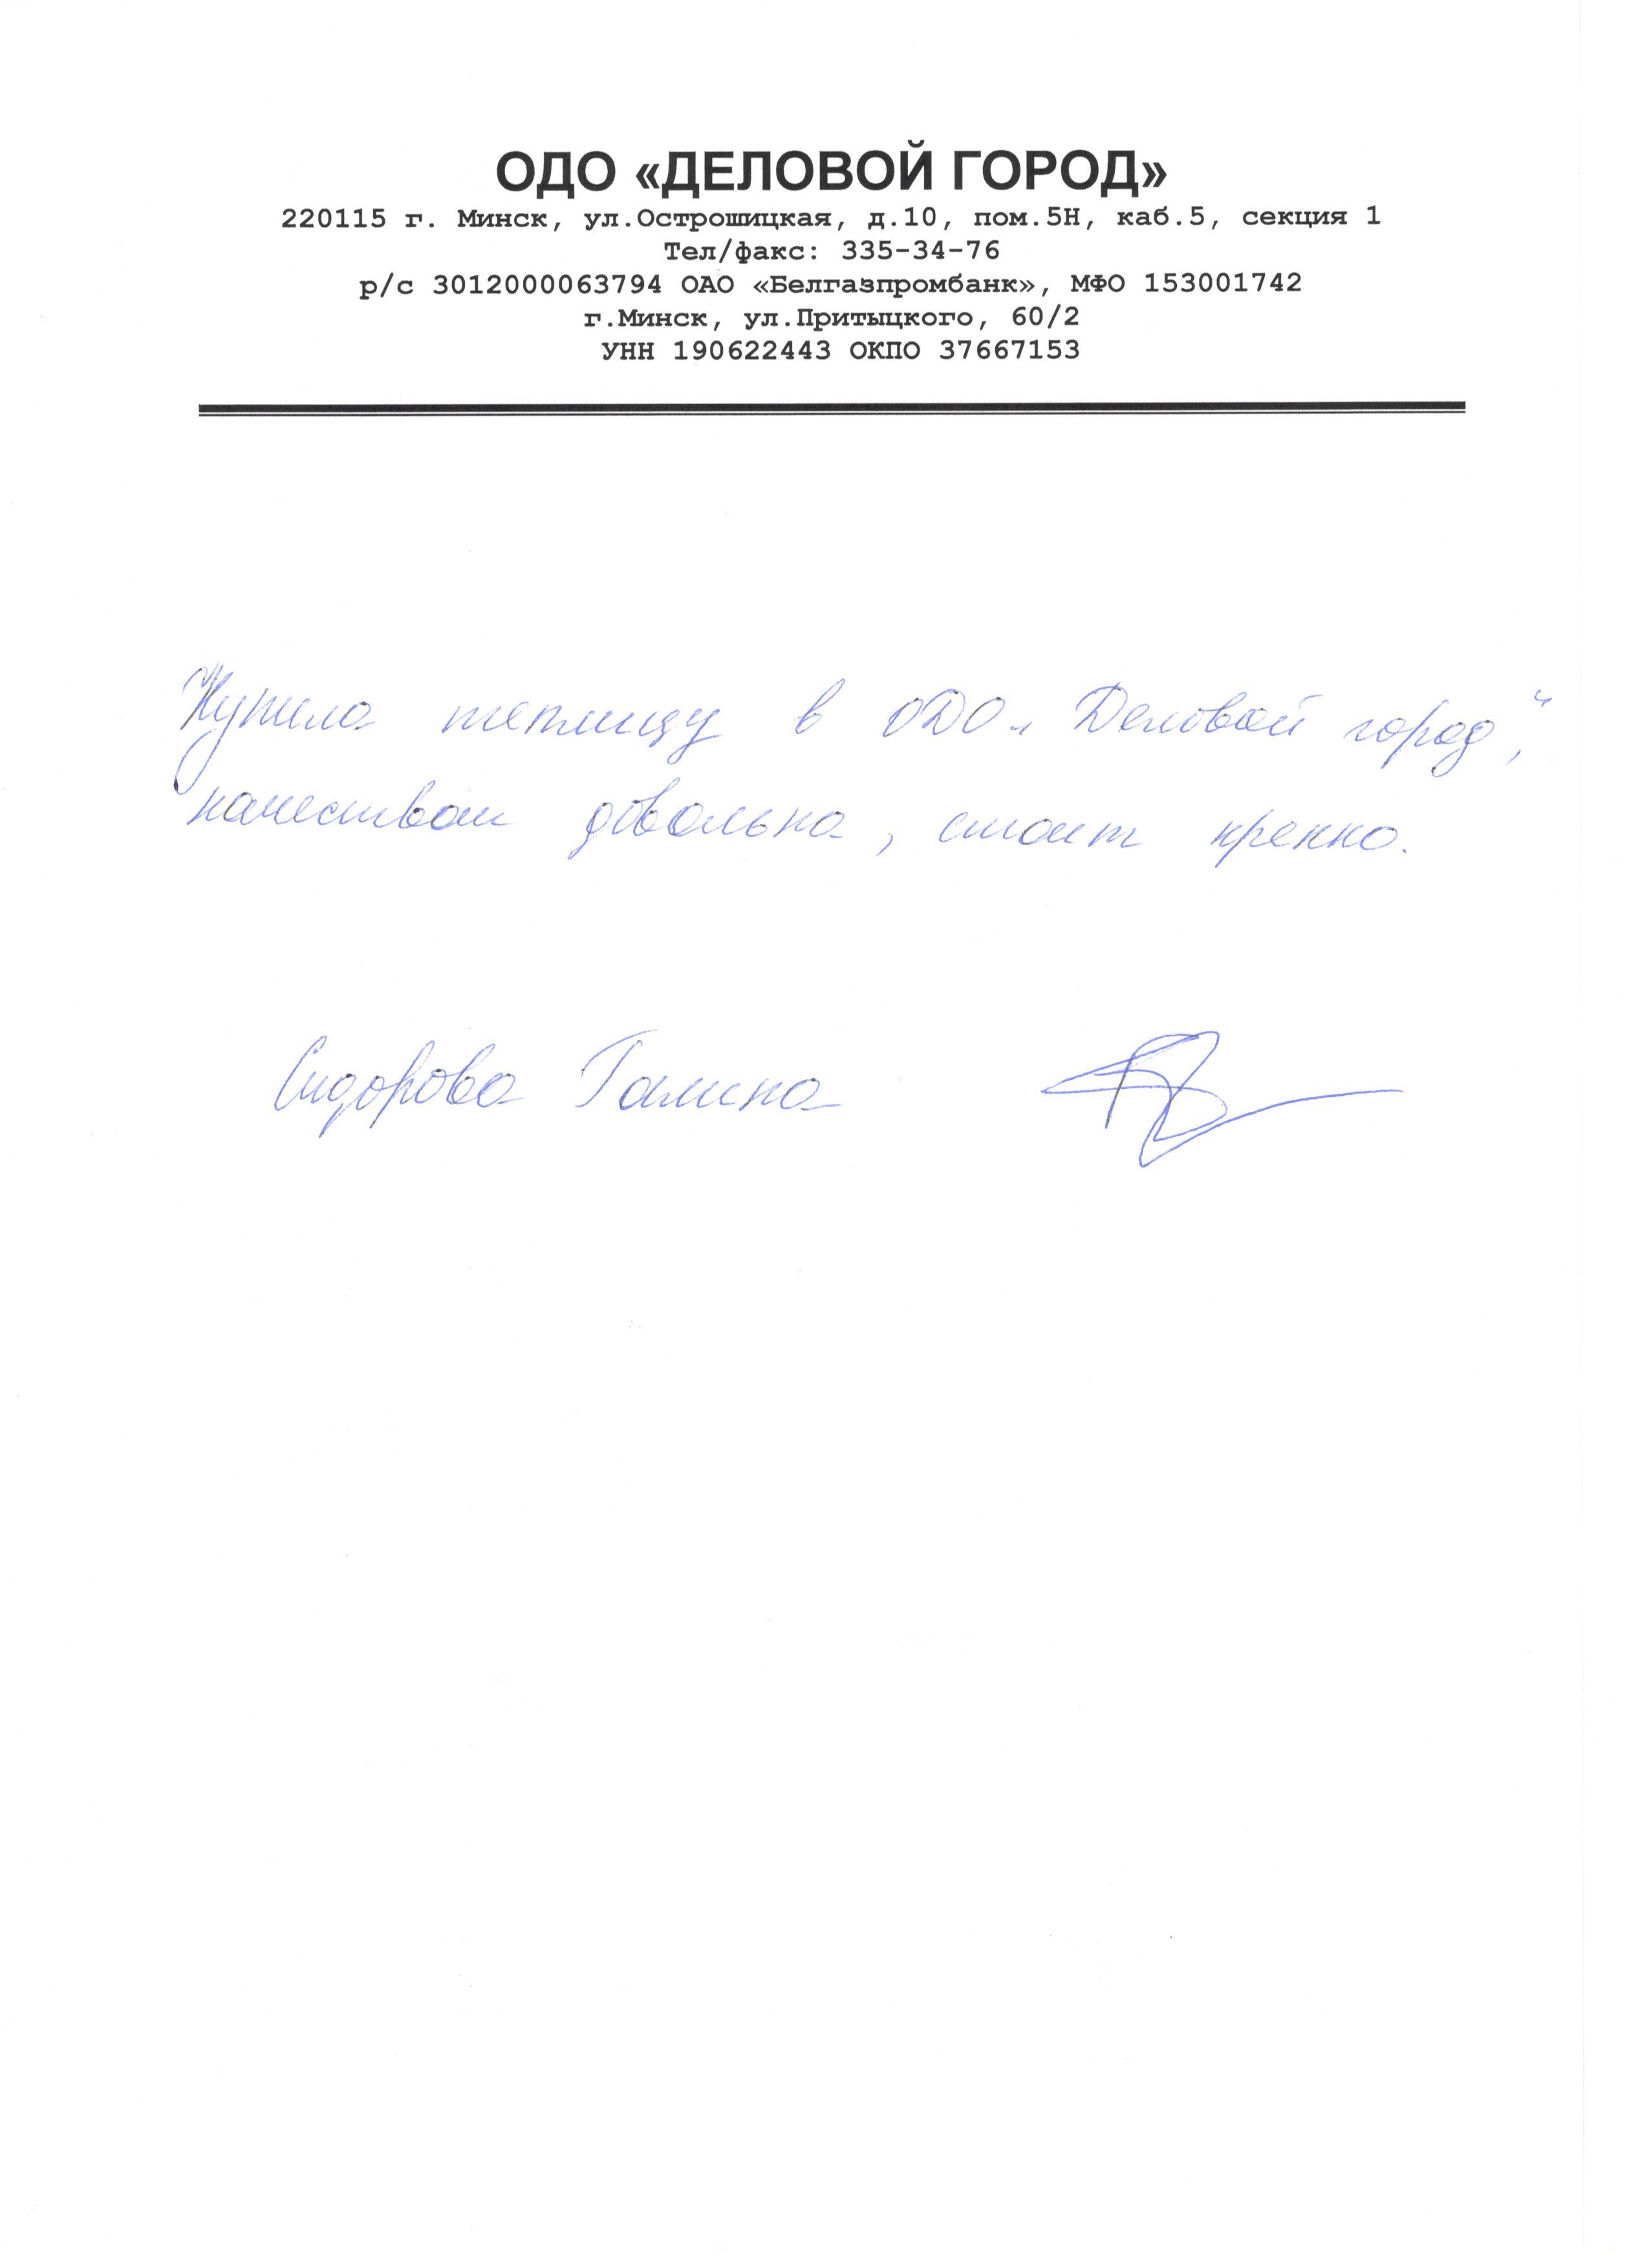 ОДО «ДЕЛОВОЙ ГОРОД»
220115 г. Минск, ул.Острошицкая, д.10, пом.5Н, каб.5, секция 1
Тел/факс: 335-34-76
р/с 3012000063794 ОАО «Белгазпромбанк», МФО 153001742
г.Минск, ул.Притыцкого, 60/2
УНН 190622443 ОКПО 37667153
Купила теплицу в ОДО „Деловой город“,
качеством довольна, стоит крепко.
Сидорова Галина